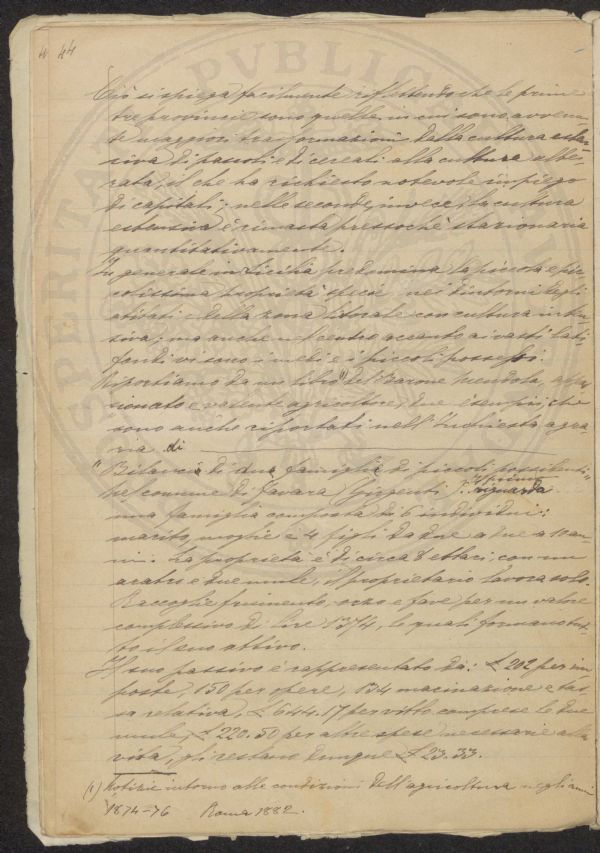 44
Ciò si spiega facilmente riflettendo che le prime
tre provincie sono quelle in cui sono avvenu-
te maggiori trasformazioni della cultura esten-
siva di pascoli e di cereali alla cultura albe-
rata, il che ha richiesto notevole impiego
di capitali; nelle seconde, invece, la cultura
estensiva è rimasta pressochè stazionaria
quantitativamente.
In generale in Sicilia predomina la piccola e pic-
colissima proprietà specie nei dintorni degli
abitati e della zona litorale con cultura inten-
siva; ma anche nel centro accanto ai vasti lati-
fondi vi sono i medi e i piccoli possessi.
Riportiamo da un libro (1) del Barone Mendola, appas-
sionato e valente agricoltore, due esempi, che
sono anche riportati nell'Inchiesta agra-
ria di
"Bilancio di una famiglia di piccoli possidenti"
nel comune di Favara (Girgenti). Il primo riguarda
una famiglia composta di 6 individui:
marito, moglie e 4 figli da due a 10 an-
ni. La proprietà è di circa 8 ettari, con un
aratro e due mule, il proprietario lavora solo.
Raccoglie frumento, orzo e fave per un valore
complessivo di lire 1374, le quali formano tut-
to il suo attivo.
Il suo passivo è rappresentato da: £ 202 per im-
poste, 150 per opere, 134 macinazione e tas-
sa relativa, £ 644.17 per vitto comprese le due
mule, £ 220.50 per altre spese necessarie alla
vita, gli restano dunque £ 23.33.
(1) Notizie intorno alle condizioni dell'agricoltura negli anni
1874-76 Roma 1882.
PVBLIC